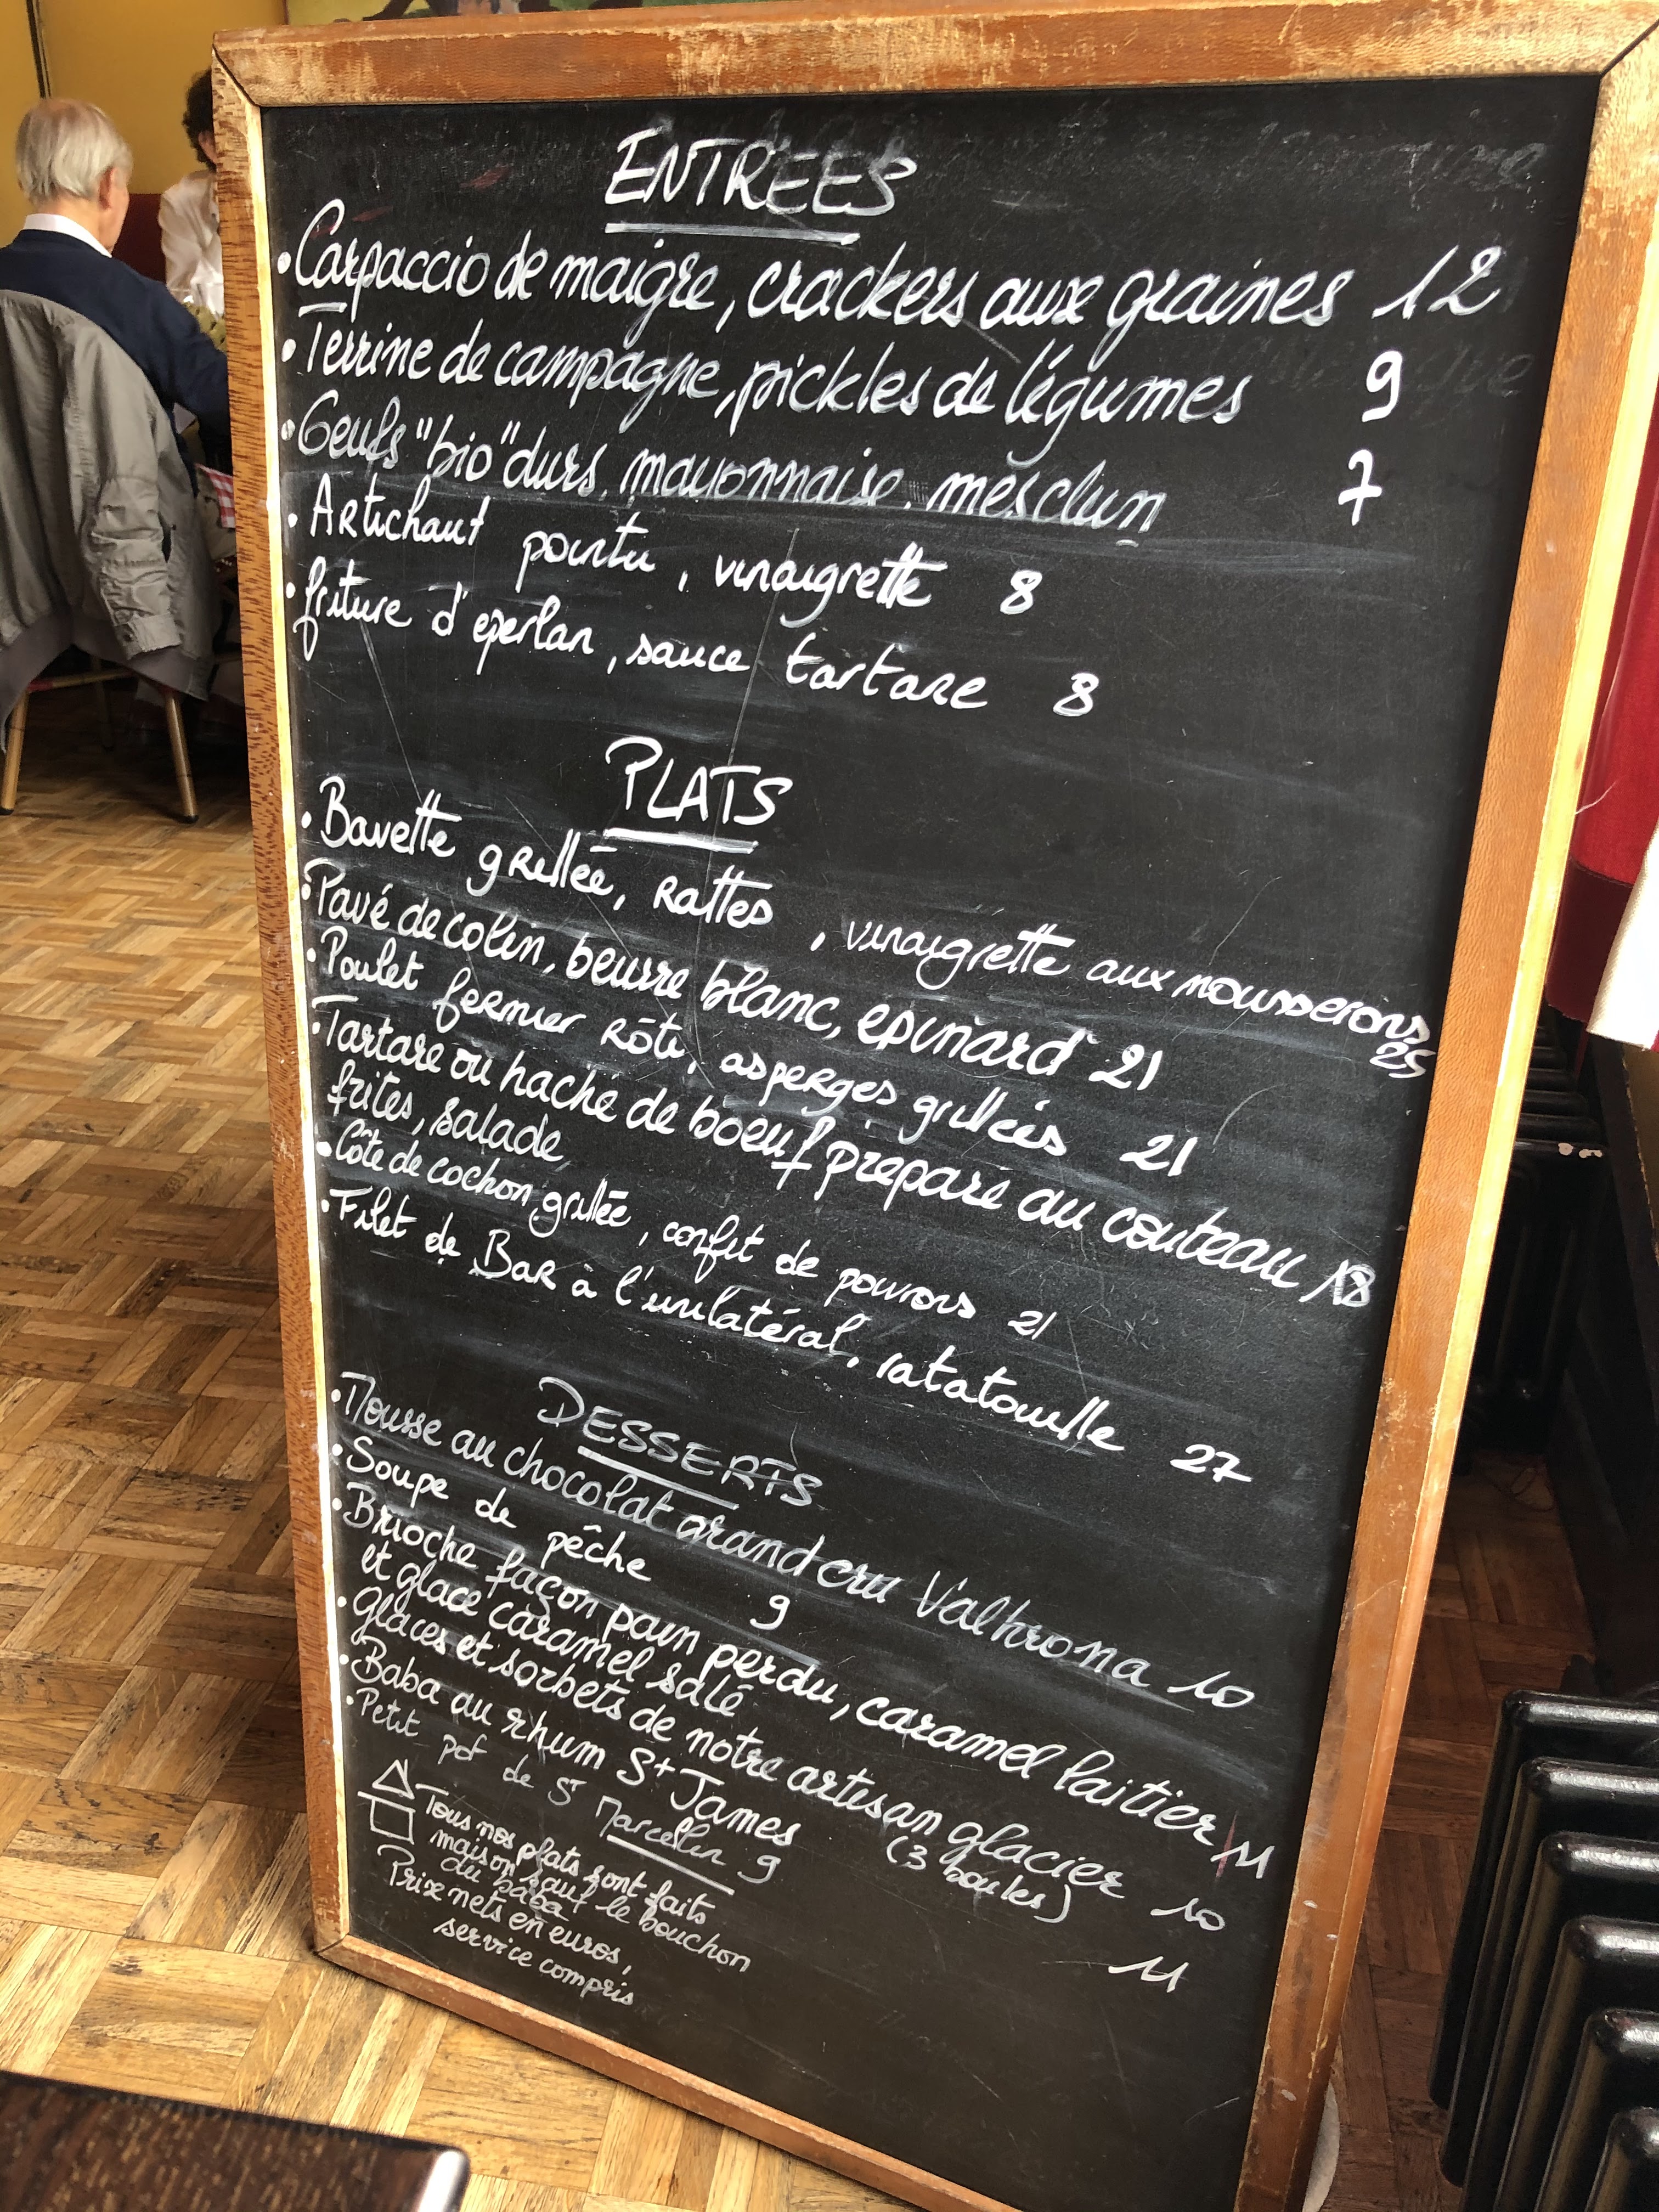 ENTREES
• Carpaccio de maigre, crackers aux graines 12
• Terrine de campagne, pickles de légumes 9
• Oeufs "bio" durs, mayonnaise, mesclun 7
• Artichaut poivtu, vinaigrette 8
• friture d'eperlan, sauce tartare 8
PLATS
• Bavette grillée, Rattes, vinaigrette aux mousserons 25
• Pavé de colin, beurre blanc, epinard 21
• Poulet fermier rôti, asperges grillées 21
• Tartare ou haché de boeuf préparé au couteau 18
frites, salade,
• Côte de cochon grillée, confit de poivrons 21
• Filet de Bar à l'unilatéral, ratatouille 27
DESSERTS
• Mousse au chocolat grand cru Valhrona 10
• Soupe de pêche 9
• Brioche façon pain perdu, caramel laitier 11
et glace caramel salé
• Glaces et sorbets de notre artisan glacier 10
(3 boules)
• Baba au rhum St James 11
• Petit pot de St Marcellin 9
Tous nos plats sont faits
maison sauf le bouchon
du baba
Prix nets en euros,
service compris